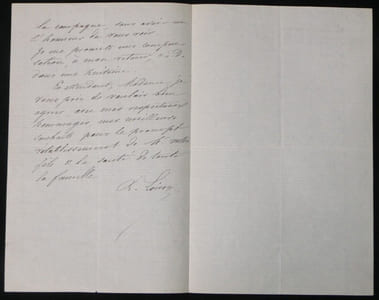 la campagne sans avoir eu
l'honneur de vous voir.
Je me promets une compen
sation, à mon retour,
dans une huitaine.
En attendant, Madame, je
vous prie de vouloir bien
agréer avec mes respectueux
hommages, mes meilleurs
souhaits pour le prompt
rétablissement de votre
fils et la santé de toute
la famille.